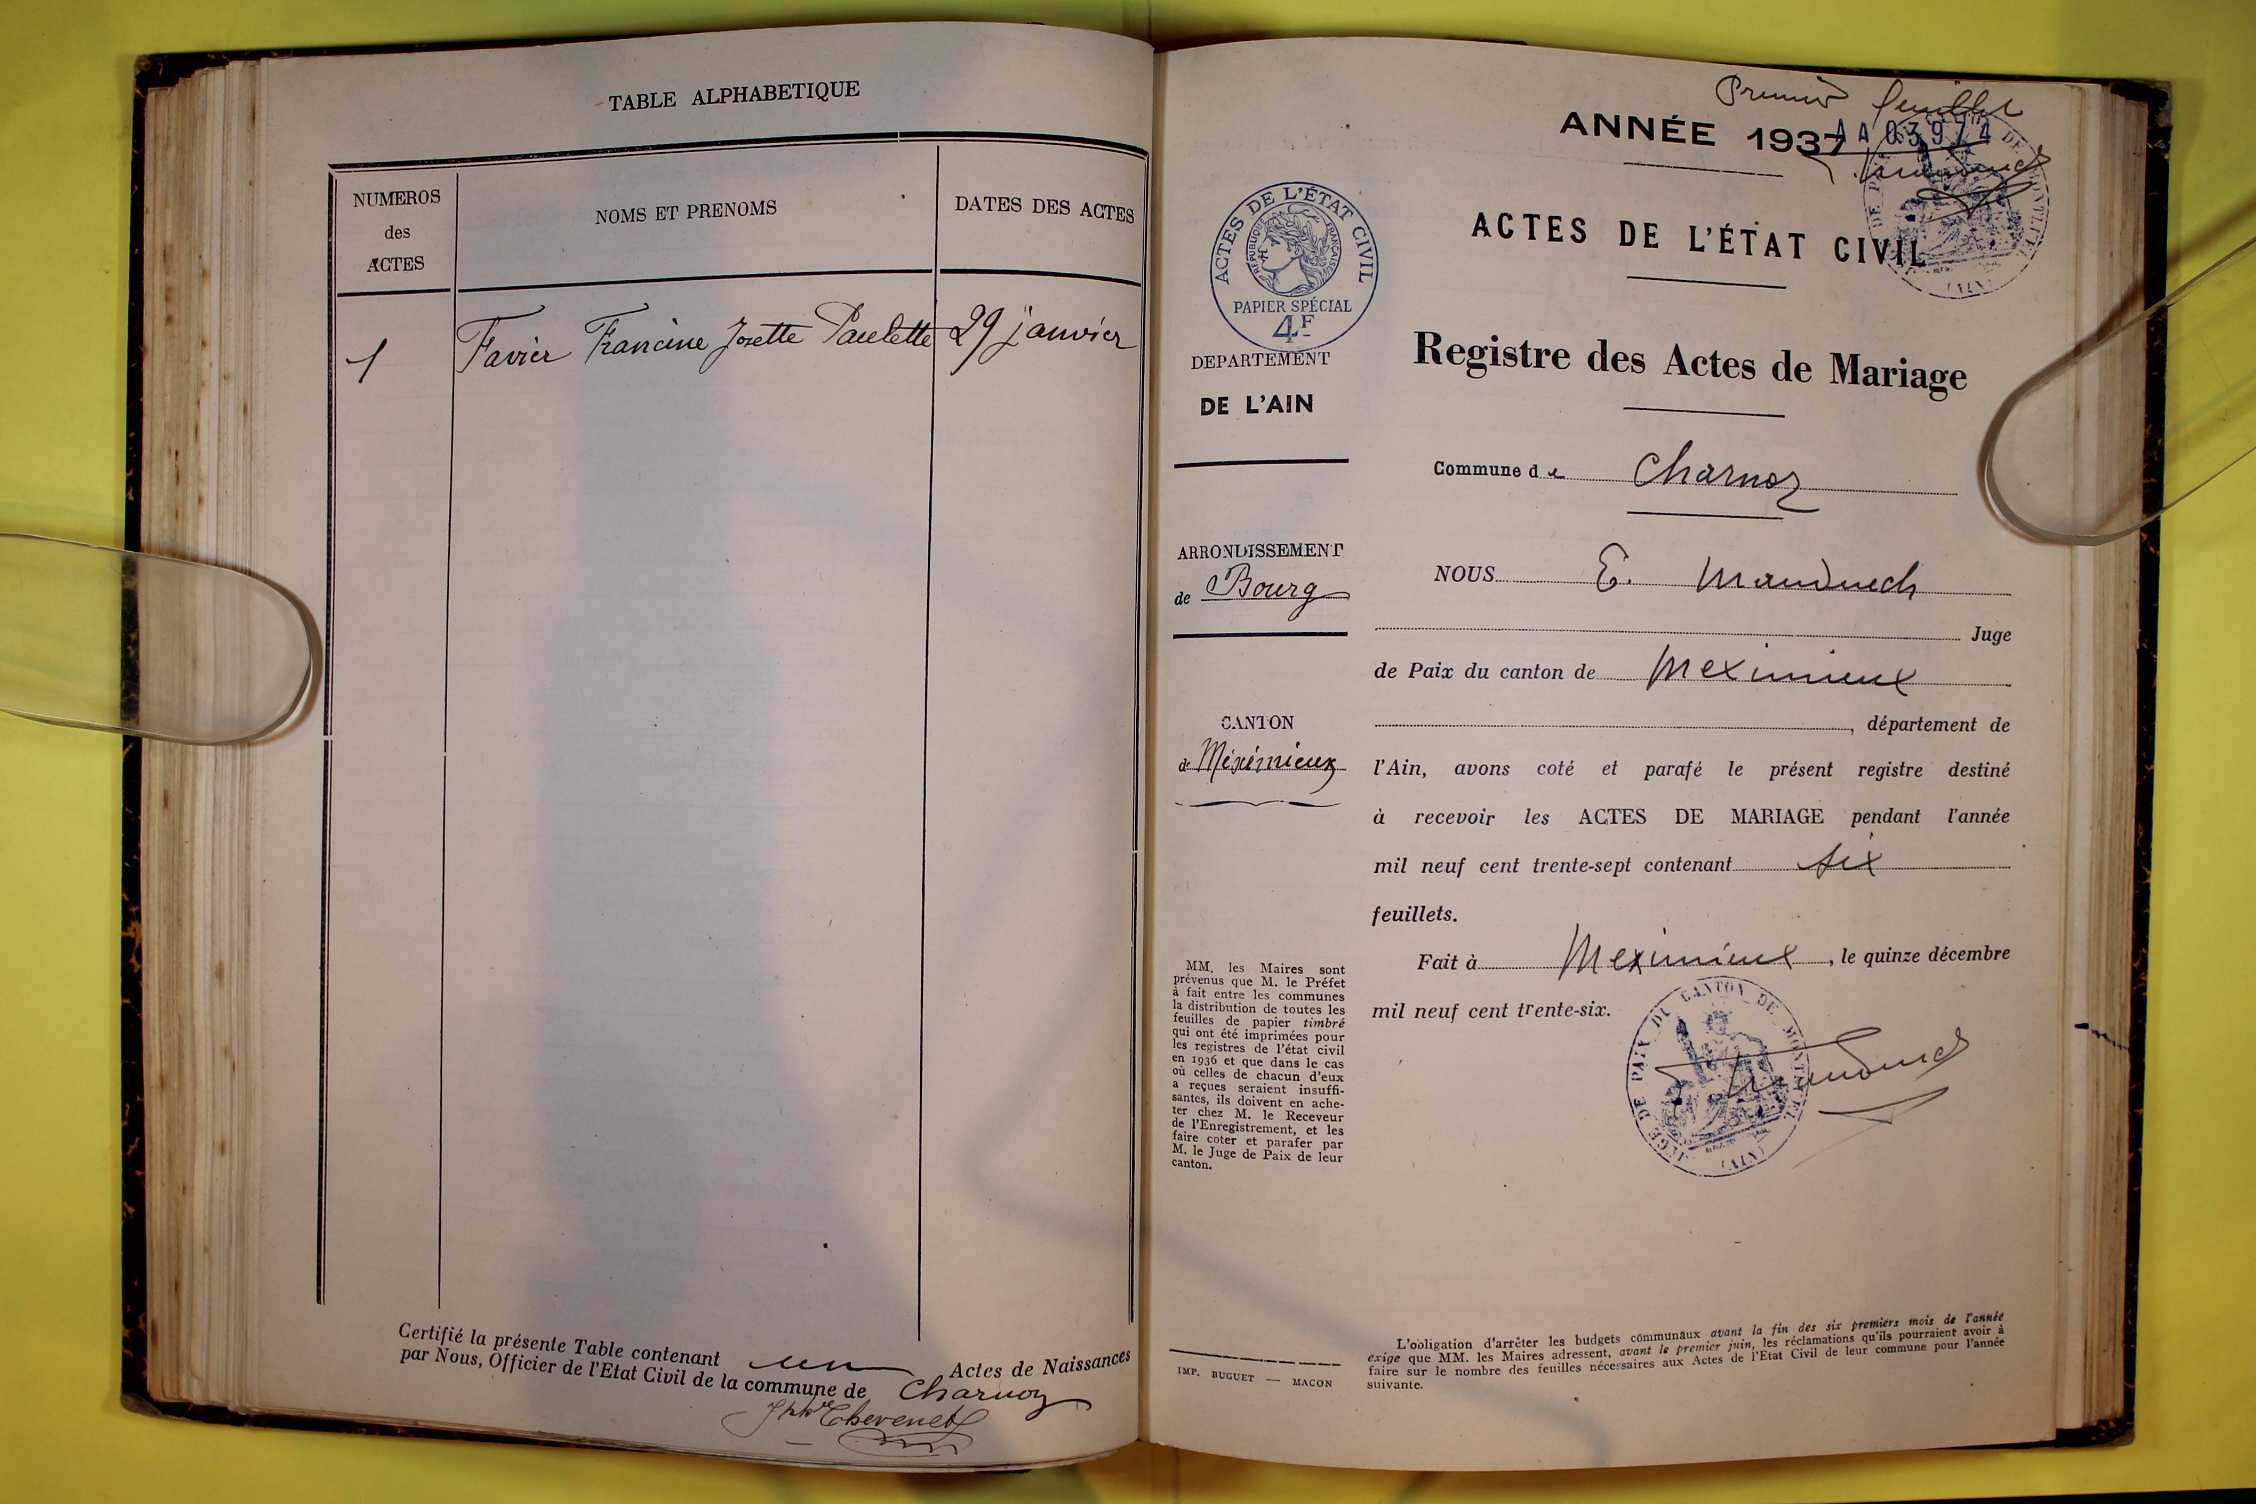 TABLE ALPHABETIQUE
NUMEROS
des
ACTES
NOMS ET PRENOMS
DATES DES ACTES
1 Favier Francine Josette Paulette 29 janvier
Certifié la présente Table contenant un Actes de Naissances
par Nous, Officier de l'Etat Civil de la commune de Charnoz
Thevenet
Premier feuillet
ANNÉE 1937
AA 03974
ACTES DE L'ÉTAT CIVIL
RÉPUBLIQUE FRANÇAISE
PAPIER SPÉCIAL
4F
DEPARTEMENT
DE L'AIN
ARRONDISSEMENT
de Bourg
CANTON
de Méximieux
MM. les Maires sont
prévenus que M. le Préfet
à fait entre les communes
la distribution de toutes les
feuilles de papier timbré
qui ont été imprimées pour
les registres de l'état civil
en 1936 et que dans le cas
où celles de chacun d'eux
a reçues seraient insuffi-
santes, ils doivent en ache-
ter chez M. le Receveur
de l'Enregistrement, et les
faire coter et parafer par
M. le Juge de Paix de leur
canton.
IMP. BUGUET — MACON
ACTES DE L'ÉTAT CIVIL
Registre des Actes de Mariage
Commune de Charnoz
NOUS E.
Juge
de Paix du canton de Meximieux
, département de
l'Ain, avons coté et parafé le présent registre destiné
à recevoir les ACTES DE MARIAGE pendant l'année
mil neuf cent trente-sept contenant six
feuillets.
Fait à Meximieux, le quinze décembre
mil neuf cent trente-six.
JUGE DE PAIX DU CANTON DE MONTLUEL
(AIN)
L'obligation d'arrêter les budgets communaux avant la fin des six premiers mois de l'année
exige que MM. les Maires adressent, avant le premier juin, les réclamations qu'ils pourraient avoir à
faire sur le nombre des feuilles nécessaires aux Actes de l'Etat Civil de leur commune pour l'année
suivante.